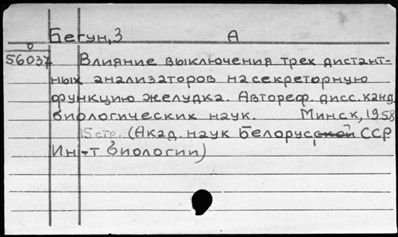 Бегун, З А
56037 Влияние выключения трех дистант-
ных анализаторов на секреторную
функцию желудка. Автореф. дисс. канд.
биологических наук. Минск, 1958
15 стр. (Акад. наук Белорусской ССР
Ин-т биологии)